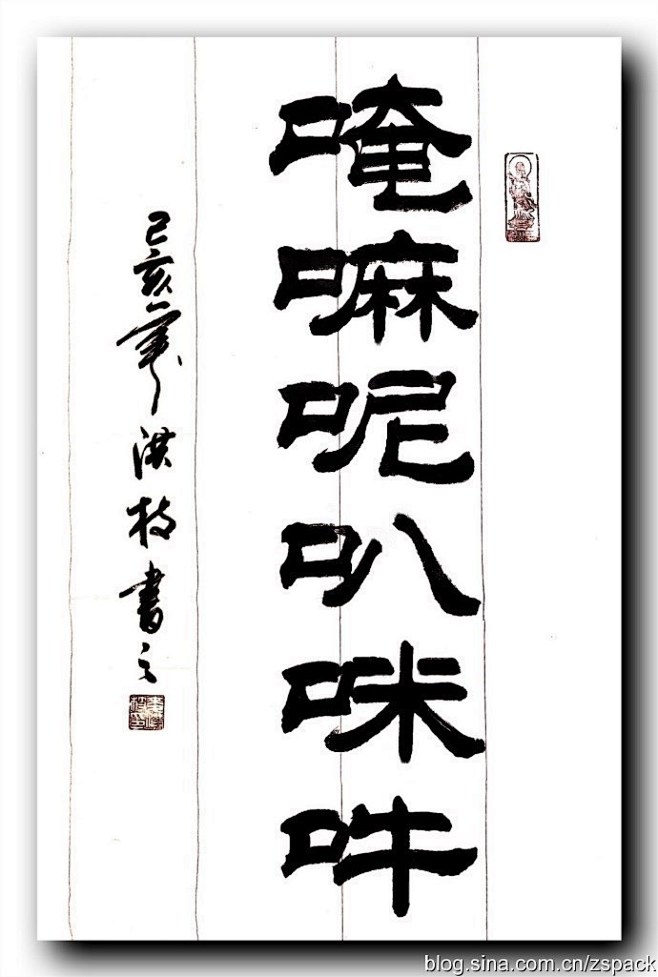 唵嘛呢叭咪吽
己亥年洪枝書之
blog.sina.com.cn/zspack